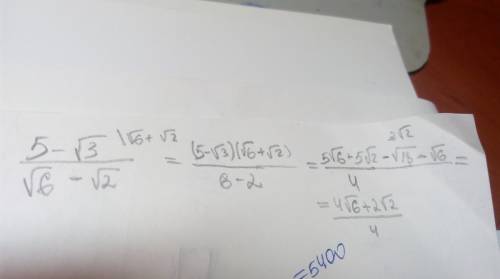 (5-√3)/(√6-√2) \√6+√2 = ((5-√3)(√6+√2))/(6-2) = (5√6+5√2-√18-√6)/4 =
3√2
= (4√6+2√2)/4
=5400